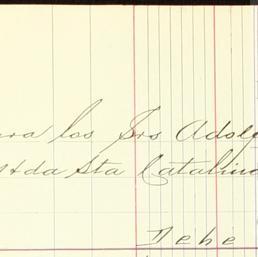 los Srs Adolf
Hda Sta Catalina
Debe